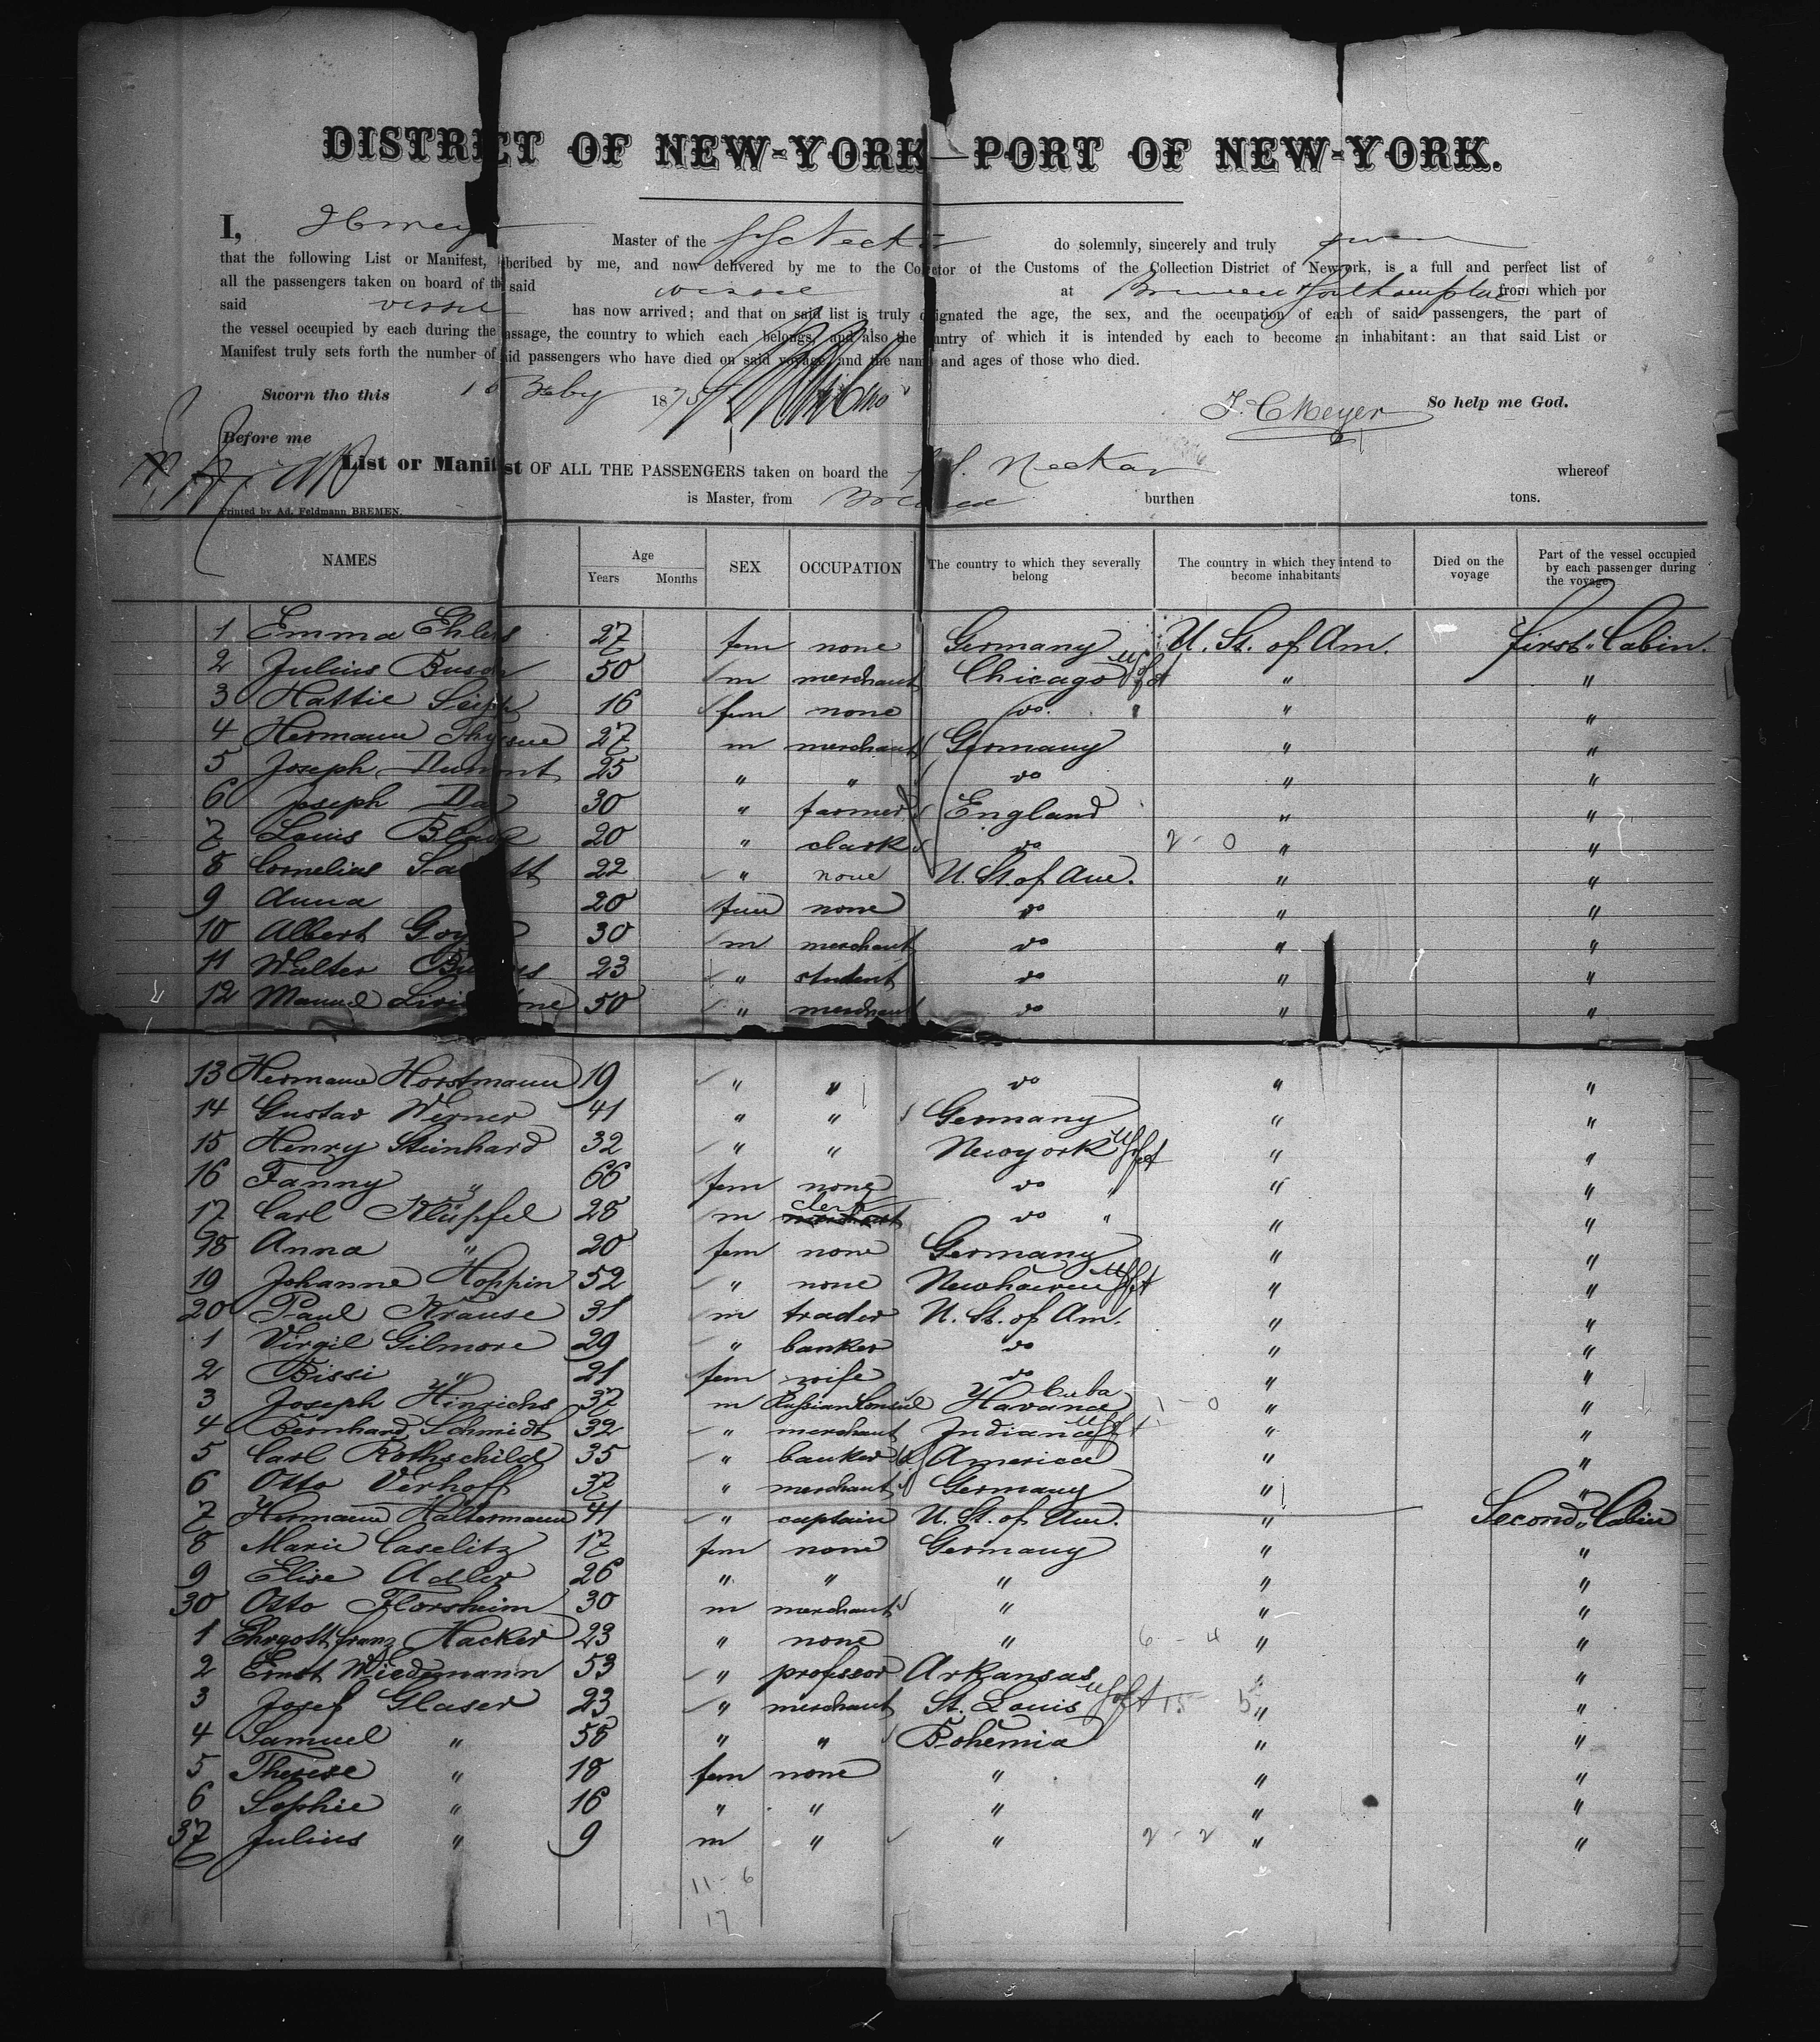 DISTRICT OF NEW-YORK—PORT OF NEW-YORK.
I, Master of the SS Neckar do solemnly, sincerely and truly
that the following List or Manifest, subscribed by me, and now delivered by me to the Collector of the Customs of the Collection District of New York, is a full and perfect list of
all the passengers taken on board of the said vessel at Bremen & Southampton from which por
said vessel has now arrived; and that on said list is truly designated the age, the sex, and the occupation of each of said passengers, the part of
the vessel occupied by each during the passage, the country to which each belongs, and also the country of which it is intended by each to become an inhabitant: an that said List or
Manifest truly sets forth the number of said passengers who have died on said voyage, and the name and ages of those who died.
Sworn tho this Feby 1875 J. C Meyer So help me God.
Before me
List or Manifest OF ALL THE PASSENGERS taken on board the Neckar whereof
is Master, from Bremen burthen tons.
Printed by Ad. Feldmann BREMEN.
NAMES Age Years Months SEX OCCUPATION The country to which they severally belong The country in which they intend to become inhabitants Died on the voyage Part of the vessel occupied by each passenger during the voyage
1 Emma Ehlers 27 fem none Germany U. St. of Am. first Cabin.
2 Julius 50 m merchant Chicago " "
3 Hattie 16 fem none do " "
4 Hermann 27 m merchant Germany " "
5 Joseph Dumont 25 " " do " "
6 Joseph 30 " farmer England " "
7 Louis 20 " clark do 2-0 " "
8 Cornelius 22 " none U. St. of Am. " "
9 Anna 20 fem none do " "
10 Albert 30 m merchant do " "
11 Walter 23 " student do " "
12 Manuel Livingstone 50 " merchant do " "
13 Hermann Horstmann 19 " " do " "
14 Gustav Werner 41 " " Germany " "
15 Henry Steinhard 32 " " Newyork " "
16 Fanny " 66 fem none do " " "
17 Carl Klüpfel 28 m clerk do " " "
18 Anna " 20 fem none Germany " "
19 Johanne Hoppin 52 " none Newhaven " "
20 Paul Krause 31 m trader U. St. of Am. " "
1 Virgil Gilmore 29 " banker do " "
2 Bissi " 21 fem wife do " "
3 Joseph Hinrichs 37 m Russian Consul Havana Cuba 1-0 " "
4 Bernhard Schmidt 32 " merchant Indiana " "
5 Carl Rothschild 35 " banker America " "
6 Otto Verhoff 37 " merchant Germany " "
7 Hermann Haltermann 41 " captain U. St. of Am. " Second Cabin
8 Marie Caselitz 17 fem none Germany " "
9 Elise Adler 26 " " " " "
30 Otto Florsheim 30 m merchant " " "
1 Ehrgott franz Hacker 23 " none " 6-4 " "
2 Ernst Wiedemann 53 " professor Arkansas " "
3 Josef Glaser 23 " merchant St. Louis 15 5 " "
4 Samuel " 58 " " Bohemia " "
5 Therese " 18 fem none " " "
6 Sophie " 16 " " " " "
37 Julius " 9 m " " 2-2 " "
11-6
17